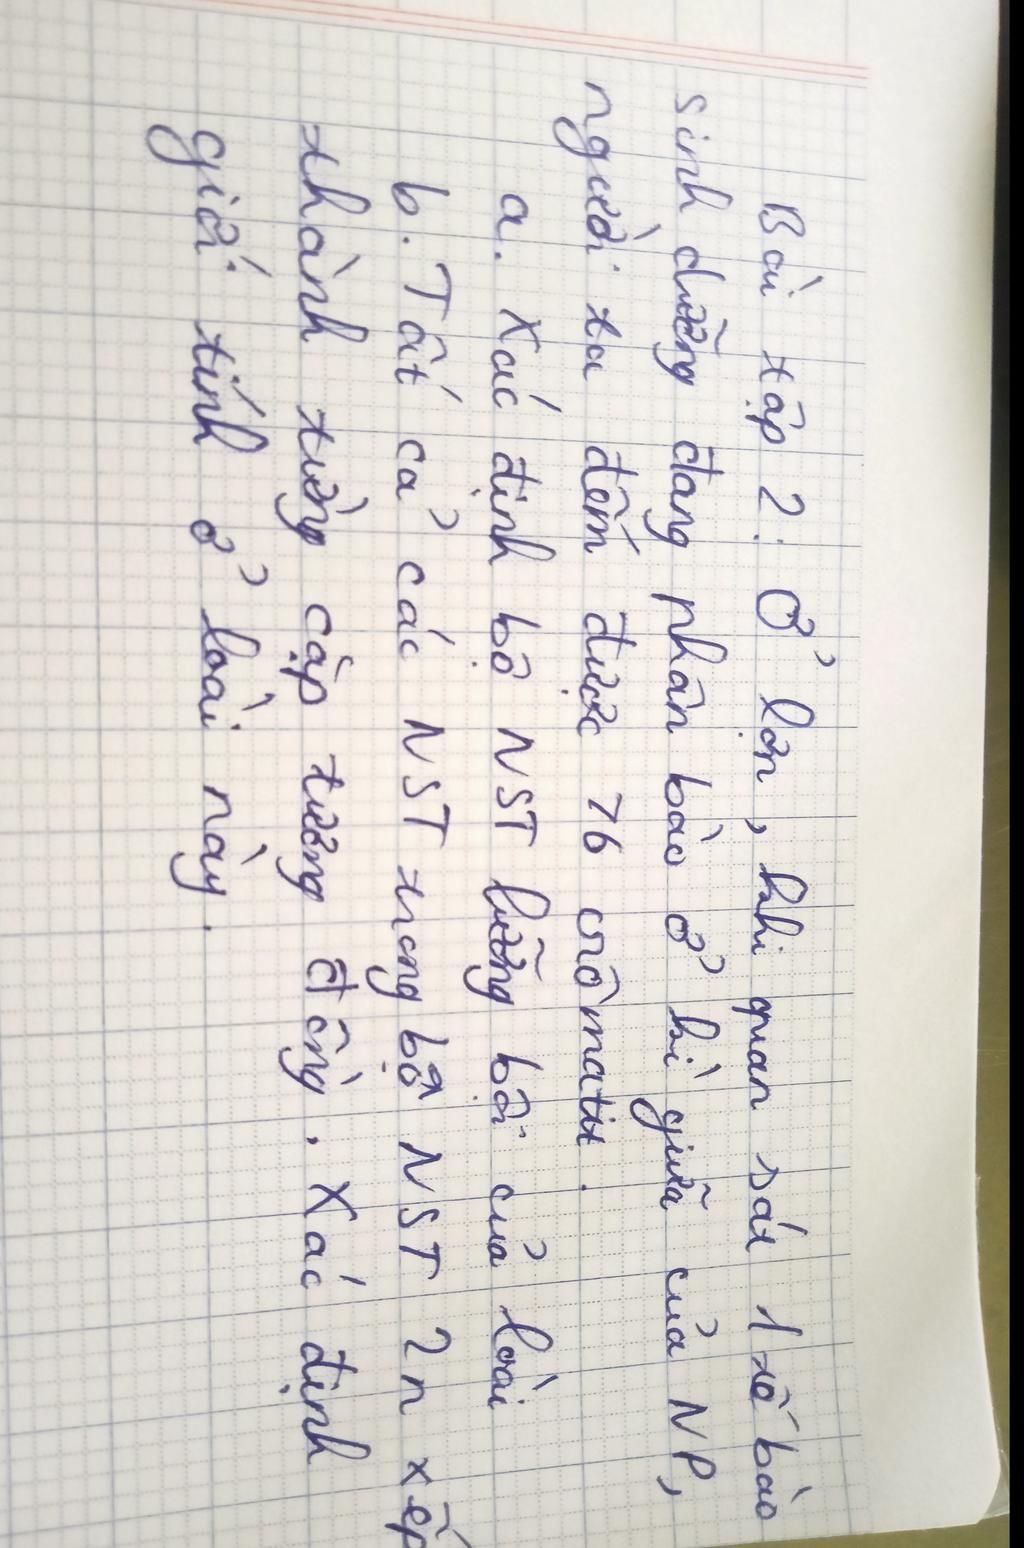 Bài tập 2: Ở lợn, khi quan sát 1 tế bào
sinh dưỡng đang phân bào ở kì giữa của NP,
người ta đếm được 76 crômatit.
a. Xác định bộ NST lưỡng bội của loài
b. Tất cả các NST trong bộ NST 2n xếp
thành từng cặp tương đồng. Xác định
giới tính ở loài này.